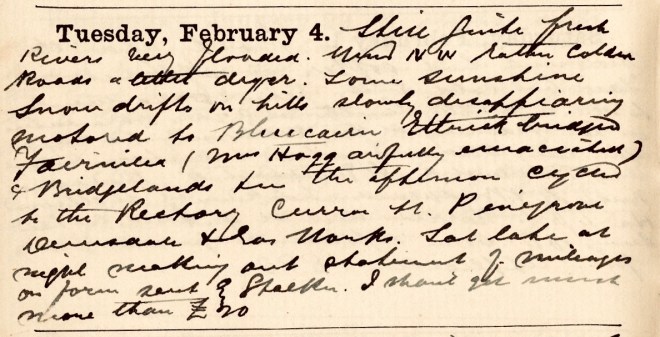 Tuesday, February 4. Still quite fresh
Rivers very flooded. Wind NW rather colder
Roads a little dryer. Some sunshine
Snow drifts on hills slowly disappearing
motored to Bluecairn Ettrickbridge
Fairnilee (Mrs Hogg awfully emaciated)
& Bridgelands In the afternoon cycled
to the Rectory Curror St. Pinegrove
& Gas Works. Sat late at
night making out statement of mileages
on form sent by Stalker. I shan't get much
more than £20